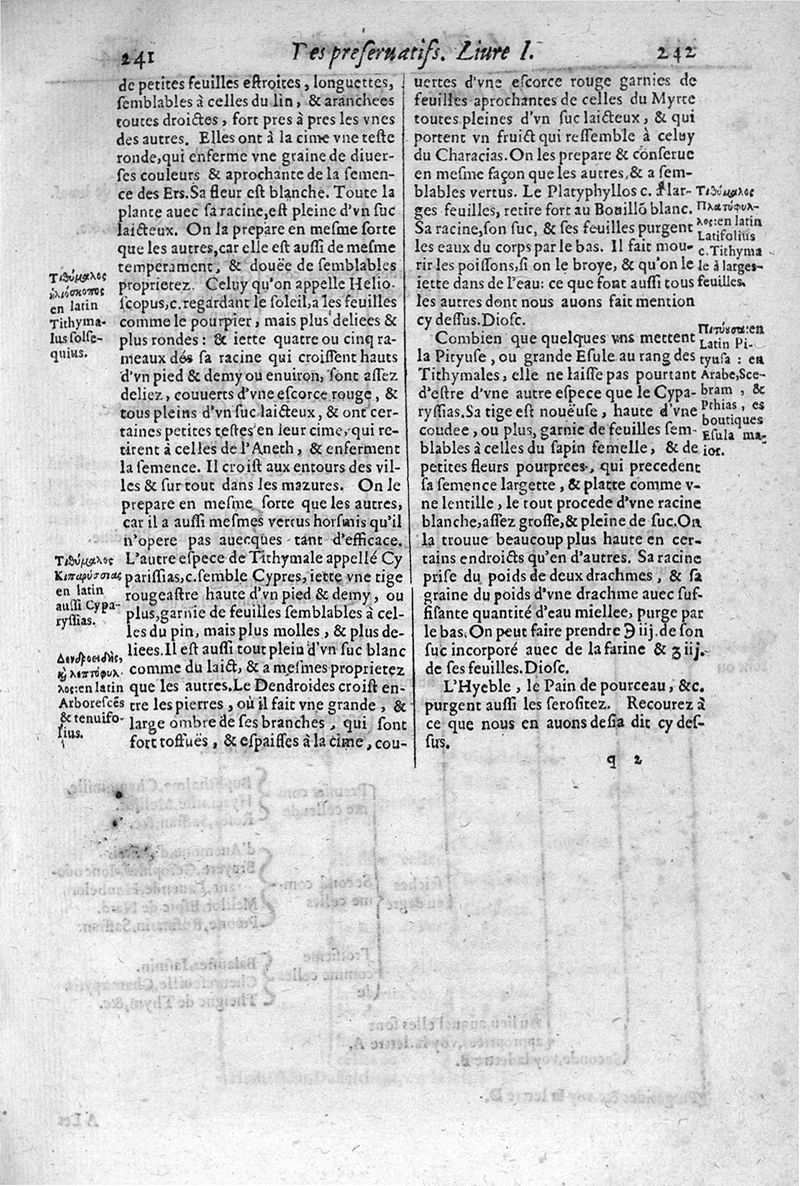 241
Des preseruatifs. Liure I.
242
de petites feuilles estroites, longuettes,
semblables à celles du lin, & aranchees
toutes droictes, fort pres à pres les vnes
des autres. Elles ont à la cime vne teste
ronde, qui enferme vne graine de diuer-
ses couleurs & aprochante de la semen-
ce des Ers. Sa fleur est blanche. Toute la
plante auec sa racine, est pleine d'vn suc
laicteux. On la prepare en mesme sorte
que les autres, car elle est aussi de mesme
temperament, & douée de semblables
proprietez. Celuy qu'on appelle Helio-
scopus, c. regardant le soleil, a les feuilles
comme le pourpier, mais plus deliees &
plus rondes : & iette quatre ou cinq ra-
meaux dés sa racine qui croissent hauts
d'vn pied & demy ou enuiron, sont assez
deliez, couuerts d'vne escorce rouge, &
tous pleins d'vn suc laicteux, & ont cer-
taines petites testes en leur cime, qui re-
tirent à celles de l'Aneth, & enferment
la semence. Il croist aux entours des vil-
les & sur tout dans les mazures. On le
prepare en mesme sorte que les autres,
car il a aussi mesmes vertus horsmis qu'il
n'opere pas auecques tant d'efficace.
L'autre espece de Tithymale appellé Cy
parissias, c. semble Cypres, iette vne tige
rougeastre haute d'vn pied & demy, ou
plus, garnie de feuilles semblables à cel-
les du pin, mais plus molles, & plus de-
liees. Il est aussi tout plein d'vn suc blanc
comme du laict, & a mesmes proprietez
que les autres. Le Dendroides croist en-
tre les pierres, où il fait vne grande, &
large ombre de ses branches, qui sont
fort toffuës, & espaisses à la cime, cou-
Τιθύμαλος
ἡλιόσκοπος
en latin
Tithyma-
lus solse-
quius.
Τιθύμαλος
Κυπαρύσσιας
en latin
aussi Cypa-
ryssias.
Δενδροειδὴς,
ἢ λεπτόφυλ-
λος: en latin
Arborescés
& tenuifo-
lius.
uertes d'vne escorce rouge garnies de
feuilles aprochantes de celles du Myrte
toutes pleines d'vn suc laicteux, & qui
portent vn fruict qui ressemble à celuy
du Characias. On les prepare & conserue
en mesme façon que les autres, & a sem-
blables vertus. Le Platyphyllos c. à lar-
ges feuilles, retire fort au Bouillõ blanc.
Sa racine, son suc, & ses feuilles purgent
les eaux du corps par le bas. Il fait mou-
rir les poissons, si on le broye, & qu'on le
iette dans de l'eau: ce que font aussi tous
les autres dont nous auons fait mention
cy dessus. Diosc.
Combien que quelques vns mettent
la Pityuse, ou grande Esule au rang des
Tithymales, elle ne laisse pas pourtant
d'estre d'vne autre espece que le Cypa-
ryssias. Sa tige est nouëuse, haute d'vne
coudee, ou plus, garnie de feuilles sem-
blables à celles du sapin femelle, & de
petites fleurs pourprees, qui precedent
sa semence largette, & platte comme v-
ne lentille, le tout procede d'vne racine
blanche, assez grosse, & pleine de suc. On
la trouue beaucoup plus haute en cer-
tains endroicts qu'en d'autres. Sa racine
prise du poids de deux drachmes, & sa
graine du poids d'vne drachme auec suf-
fisante quantité d'eau miellee, purge par
le bas. On peut faire prendre ℈ iij. de son
suc incorporé auec de la farine & ʒ iij.
de ses feuilles. Diosc.
L'Hyeble, le Pain de pourceau, &c.
purgent aussi les serositez. Recourez à
ce que nous en auons desia dit cy des-
sus.
Τιθύμαλος
Πλατύφυλ-
λος: en latin
Latifolius
c. Tithyma
le à larges-
feuilles.
Πιτύουσα: en
Latin Pi-
tyusa : en
Arabe, Sce-
bram, &
Pthias, es
boutiques
Esula ma-
ior.
q 2